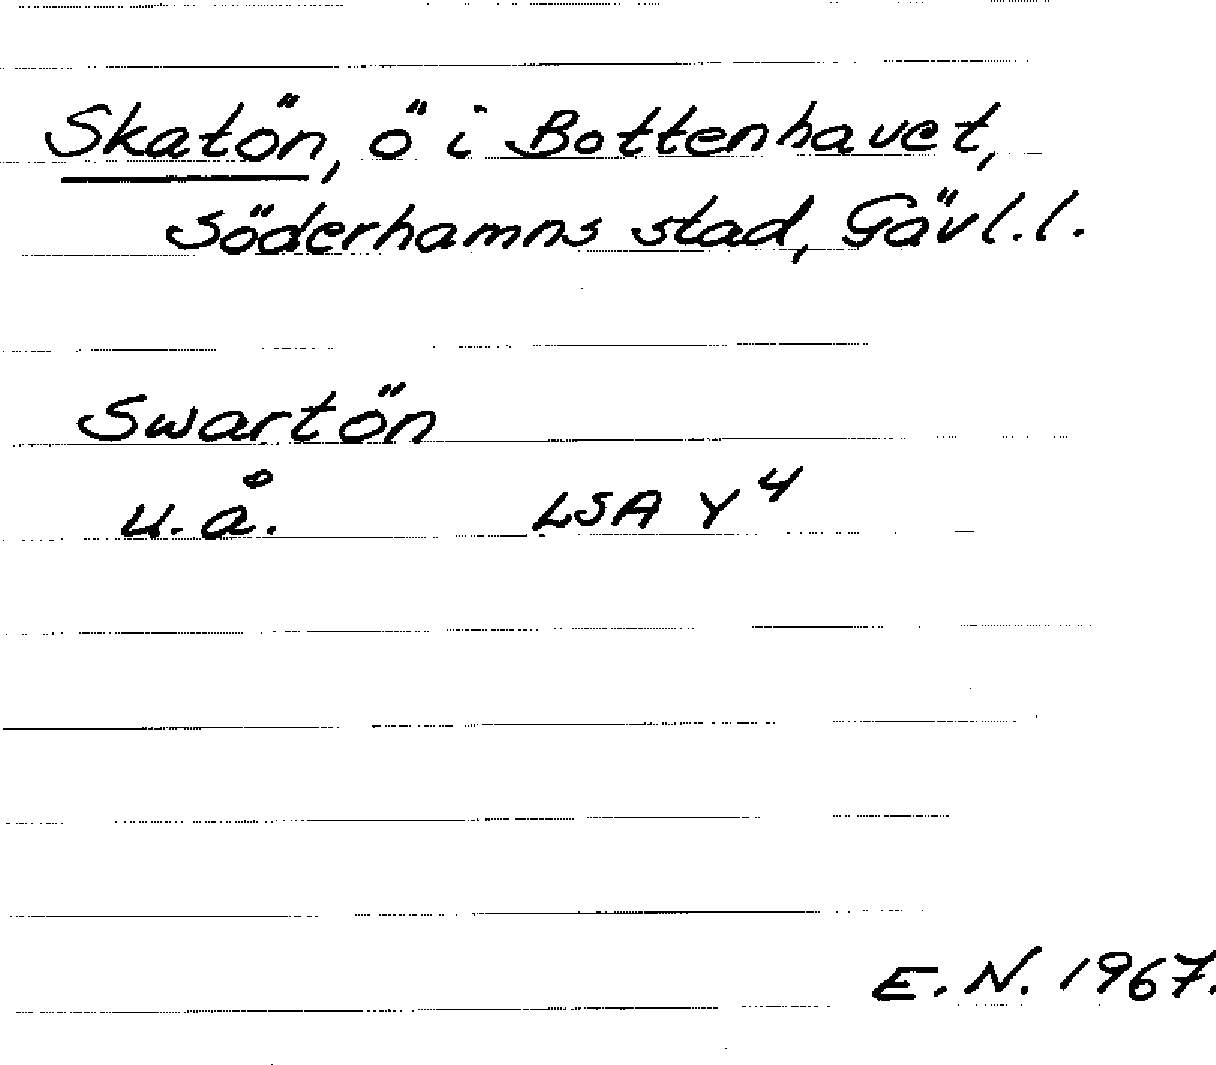 Skatön, ö i Bottenhavet,
Söderhamns stad, Gävl.l.
Swartön
u.å. LSA Y⁴
E.N. 1967.